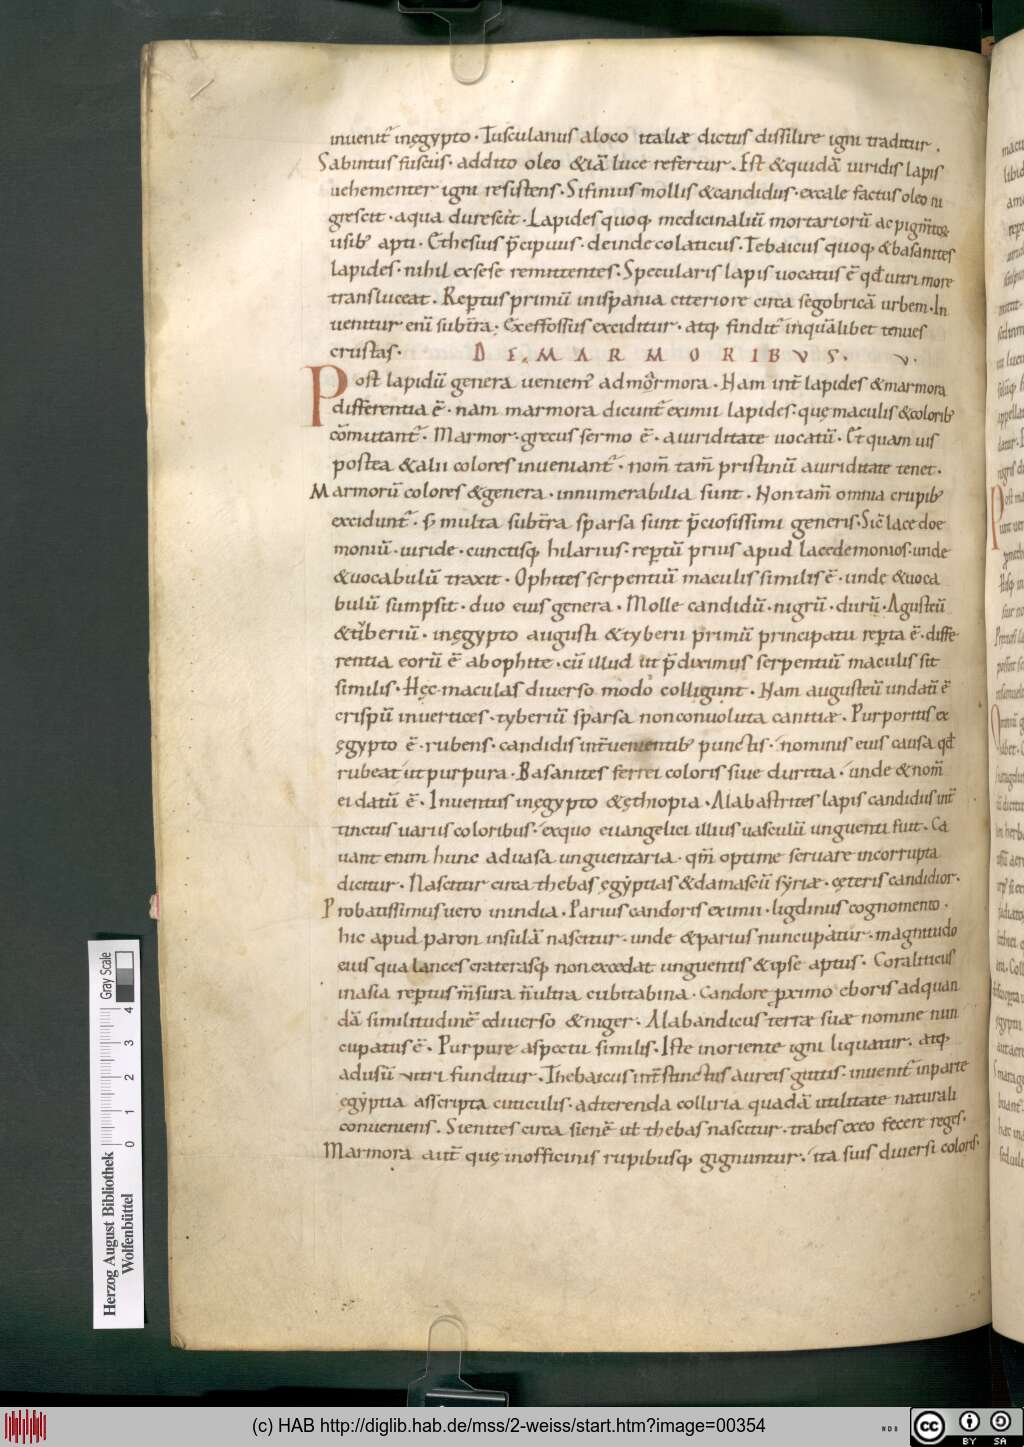 inuenit᷑ inęgypto · Tusculanus aloco italiæ dictus dissilire igni traditur .
Sabintus fuscus · addito oleo &iā luce refertur . Est &quidā uiridis lapis
uehementer igni resistens · Sifinius mollis &candidus · excale factus oleo ni
grescit · aqua durescit · Lapides quoq; medicinaliū mortariorū ac pigm̄toꝝ
usib; apti · Ethesius p̄cipuus · deinde colaticus · Tebaicus quoq; &basanites
lapides · nihil exsese remittentes · Specularis lapis uocatus ē qđ uitri more
transluceat . Reptus primū inispania citeriore circa segobricā urbem · In
uenitur eni subt̄ra · &effossus exciditur · atq; findit᷑ inquālibet tenues
crustas ·
DE MARMORIBVS · v ·
Post lapidū genera ueniem᷒ admarmora . Nam int̄ lapides &marmora
differentia ē · nam marmora dicunt᷑ eximii lapides · quę maculis &colorib;
cōmutant᷑ · Marmor · grecus sermo ē · auiriditate uocatū · Et quam uis
postea &alii colores inueniant᷑ · nom̄ tam̄ pristinū auiriditate tenet .
Marmorū colores &genera · innumerabilia sunt . Non tam̄ omnia erupib;
excidunt᷑ · s; multa subt̄ra sparsa sunt p̄ciosissimi generis · Sic̄ lacedoe
moniū · uiride · cunctisq; hilarius · reptū prius apud lacedemonios · unde
&uocabulū traxit · Ophites serpentiū maculis similis ē · unde &uoca
bulū sumpsit · duo eius genera . Molle candidū · nigrū · durū · Agusteū
&tiberiū · inęgypto augusti &tyberii primū principatu repta ē · diffe
rentia eorū ē abophite · cū illud ut p̄diximus serpentiū maculis sit
similis · Hęc maculas diuerso modo colligunt · Nam augusteū undati ē
crispū inuertices · tyberiū sparsa nonconuoluta canitiæ . Purporitis ex
ęgypto ē · rubens · candidis int̄uenientib; punctis · nominis eius causa qđ
rubeat ut purpura · Basanites ferrei coloris siue duritia · unde &nom̄
ei datū ē · Inuentus inęgypto &ęthiopia · Alabastrites lapis candidus int̄
tinctus uariis coloribus · exquo euangelici illius uasculū unguenti fuit · Ca
uant enim hunc aduasa unguentaria · qm̄ optime seruare incorrupta
dicitur · Nascitur circa thebas ęgyptias &damascū syriæ · cęteris candidior ·
Probatissimus uero inindia · Parius candoris eximii · ligdinus cognomento ·
hic apud paron insulā nascitur · unde &parius nuncupatur · magnitudo
eius qua lances craterasq; non excedat unguentis &ipse aptus · Coraliticus
inasia reptus m̄sura n̄ultra cubita bina · candore pximo eboris ad quan
dā similitudinē ediuerso &niger · Alabandicus terræ suæ nomine nun
cupatus ē · Purpure aspectu similis · Iste inoriente igni liquatur . atq;
adusū uitri funditur · Thebaicus int̄stinctus aureis guttis · inuenit᷑ inparte
ęgyptia asscripta cuticulis · adterenda colliria quadā utilitate naturali
conueniens . Sienites circa sienē ut thebas nascitur · trabes exeo fecere reges ·
Marmora aut̄ quę inofficinis rupibusq; gignuntur · ita suis diuersi coloris ·
Gray Scale
0 1 2 3 4
Herzog August Bibliothek
Wolfenbüttel
(c) HAB http://diglib.hab.de/mss/2-weiss/start.htm?image=00354
cc BY SA